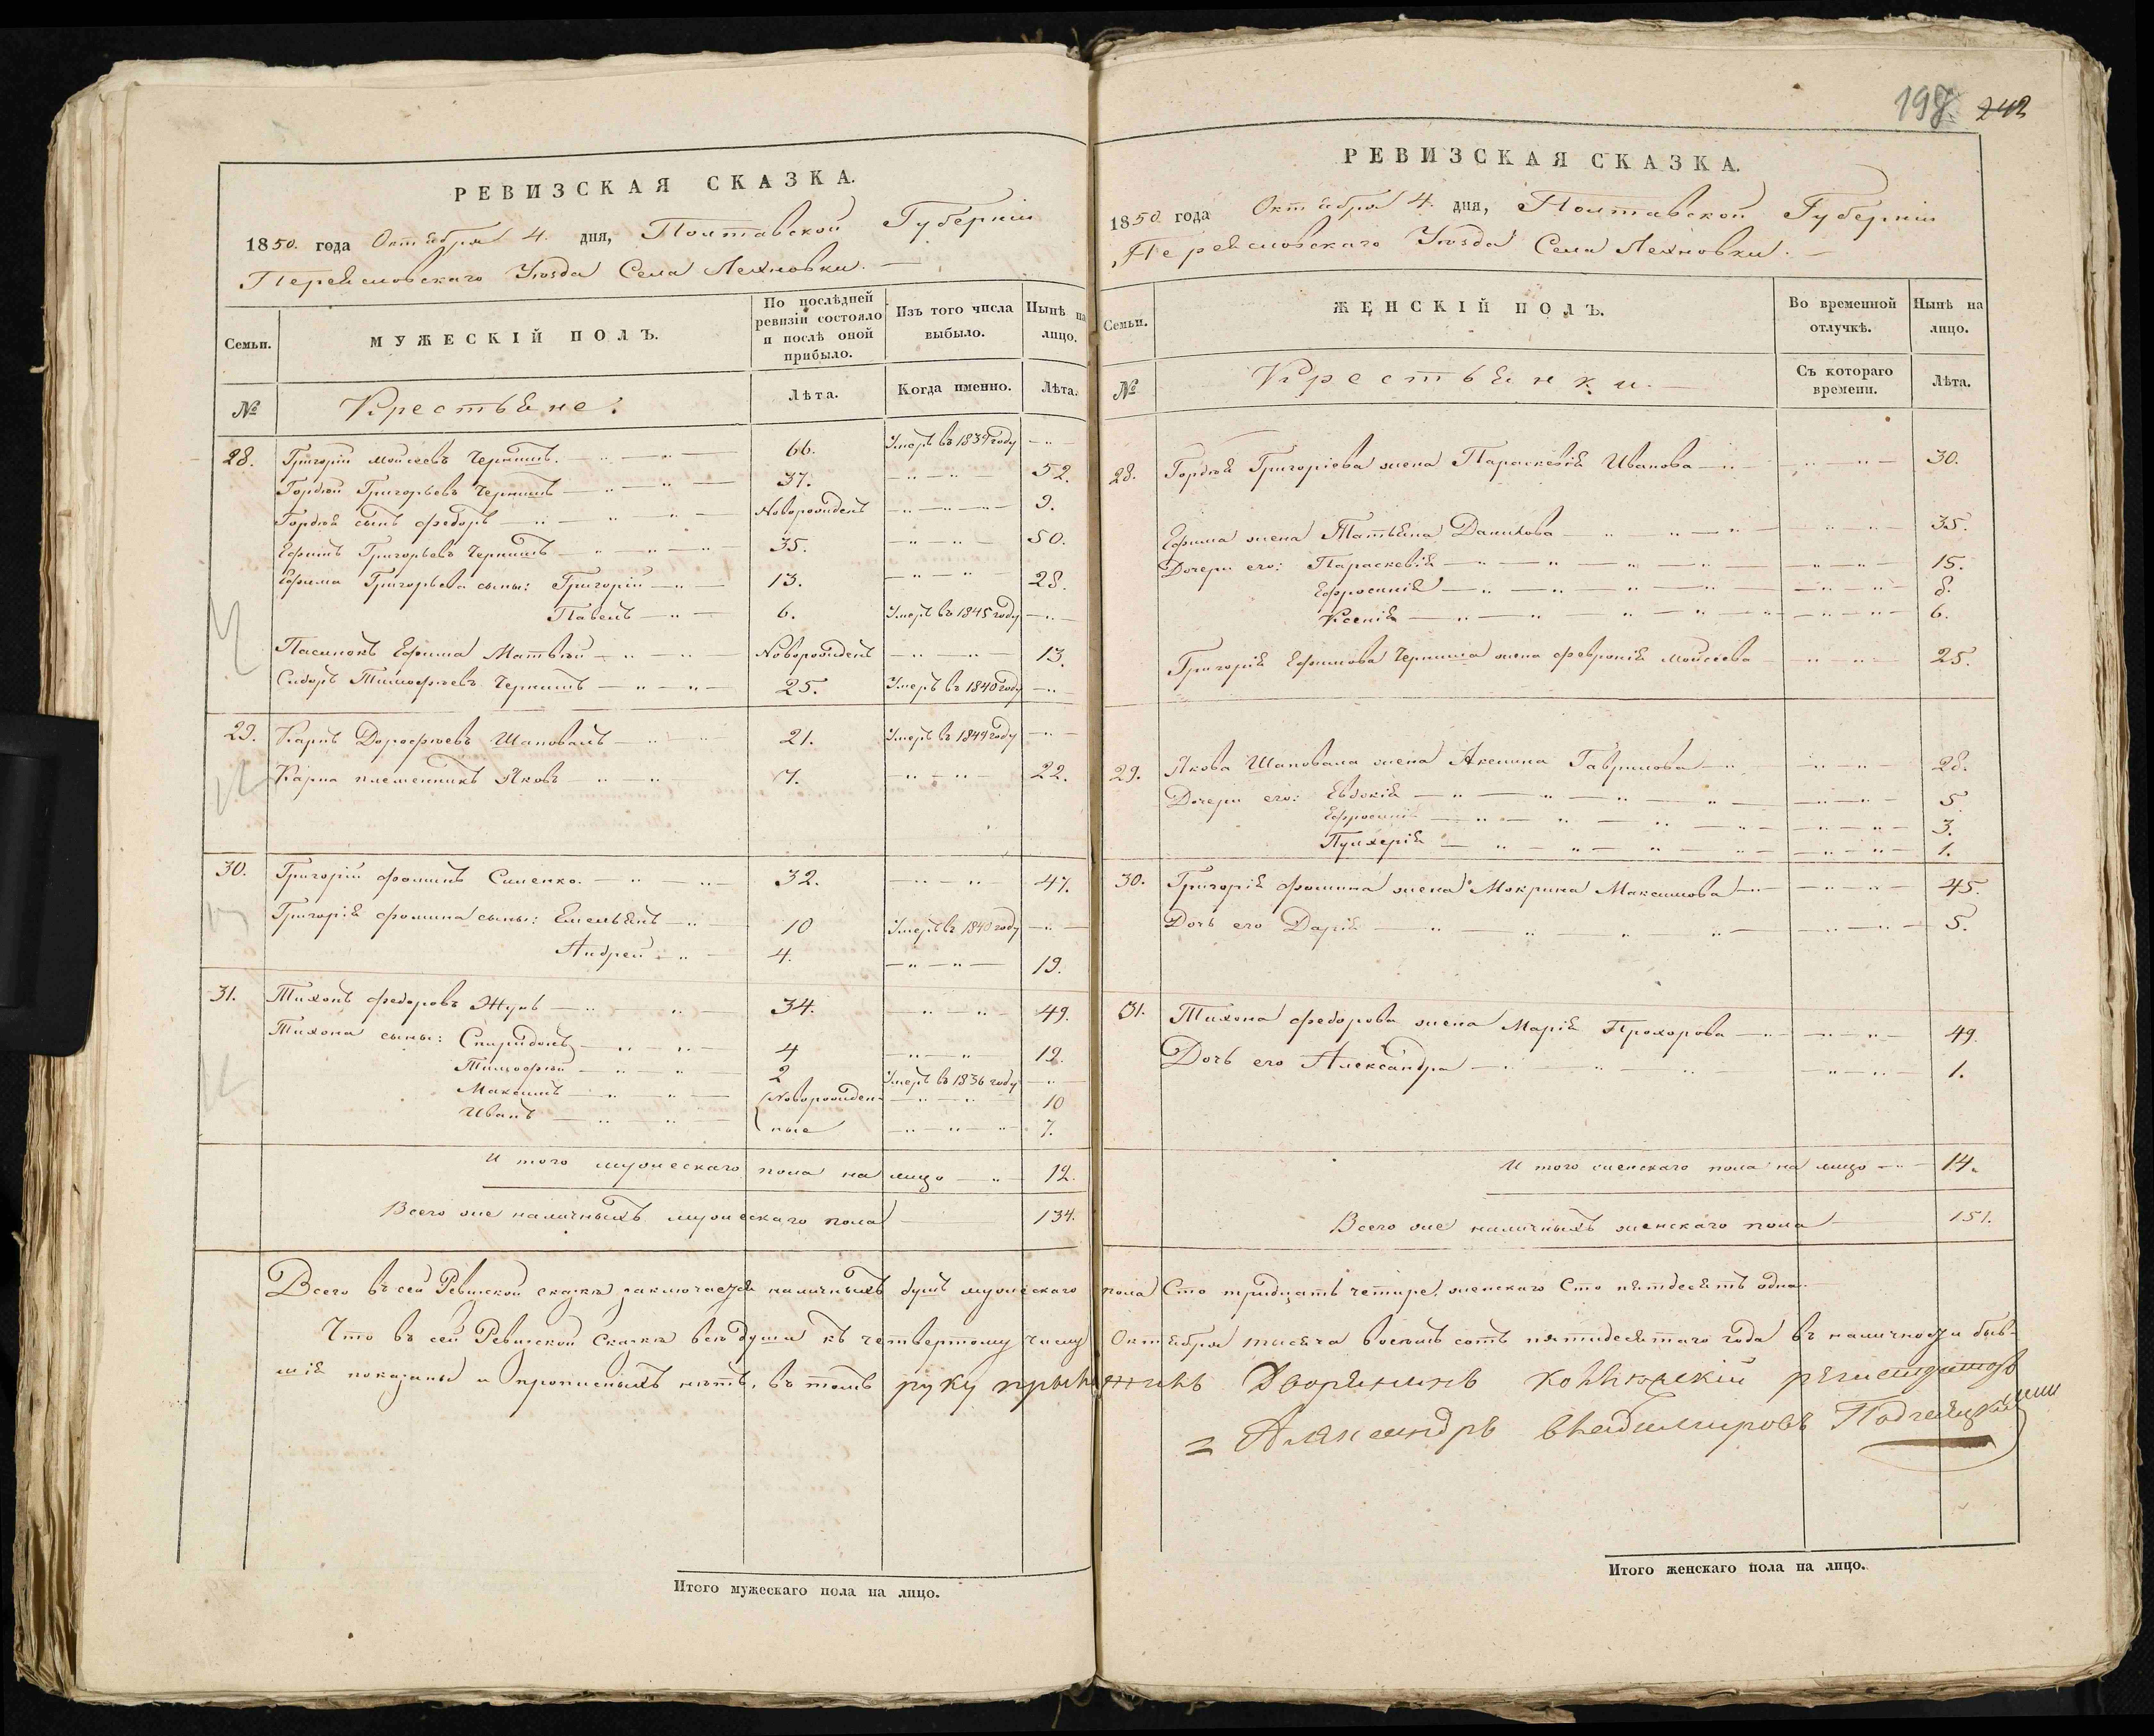 РЕВИЗСКАЯ СКАЗКА.
1850. года Октября 4. дня, Полтавской Губерніи
Переясловскаго Уѣзда Села Лехновки.
Семьи.
МУЖЕСКІЙ ПОЛЪ.
По послѣдней ревизіи состояло и послѣ оной прибыло.
Изъ того числа выбыло.
Нынѣ на лицо.
№
Крестьяне.
Лѣта.
Когда именно.
Лѣта.
28. Григорій Моисеевъ Чернышъ. 66. Умеръ въ 1839 году
Гордѣй Григорьевъ Чернышъ 37. 52.
Гордѣя сынъ Федоръ Новорожденъ 9.
Ефимъ Григорьевъ Чернышъ 35. 50.
Ефима Григорьева сыны: Григорій 13. 28.
Павелъ 6. Умеръ въ 1845 году
Пасынокъ Ефима Матвѣй Новорожденъ 13.
Сидоръ Тимофѣевъ Чернышъ 25. Умеръ въ 1840 году
29. Карпъ Дорофѣевъ Шаповалъ 21. Умеръ въ 1849 году
Карпа племенникъ Яковъ 7. 22.
30. Григорій Фоминъ Сименко. 32. 47.
Григорія Фомина сыны: Емельянъ 10 Умеръ въ 1840 году
Андрей 4. 19.
31. Тихонъ Федоровъ Жукъ 34. 49.
Тихона сыны: Спиридонъ 4 19.
Тимофѣй 2 Умеръ въ 1836 году
Максимъ Новорожден- 10
Иванъ ные 7.
И того мужескаго пола на лицо 12.
Всего же наличныхъ мужескаго пола 134.
Итого мужескаго пола на лицо.
198 242
РЕВИЗСКАЯ СКАЗКА.
1850 года Октября 4. дня, Полтавской Губерніи
Переясловскаго Уѣзда Села Лехновки.
Семьи.
ЖЕНСКІЙ ПОЛЪ.
Во временной отлучкѣ.
Нынѣ на лицо.
№
Крестьянки.
Съ котораго времени.
Лѣта.
28. Гордѣя Григоріева жена Параскевія Иванова 30.
Ефима жена Татьяна Данилова 35.
Дочери его: Параскевія 15.
Ефросинія 8.
Ксенія 6.
Григорія Ефимова Черниша жена Февронія Моисеева 25.
29. Якова Шаповала жена Аксинія Гаврилова 28.
Дочери его: Евдокія 5
Ефросинія 3.
Пулхерія 1.
30. Григорія Фомина жена Мокрина Максимова 45.
Дочь его Дарія 5.
31. Тихона Федорова жена Марія Прохорова 49.
Дочь его Александра 1.
И того женскаго пола на лицо 14.
Всего же наличныхъ женскаго пола 151.
Всего въ сей Ревизской сказкѣ заключается наличныхъ душъ мужескаго пола Сто тридцать четире, женскаго Сто пятдесятъ одна.
Что въ сей Ревизской Сказкѣ всѣ души къ четвертому числу Октября тисяча восемь сотъ пятидесятаго года въ наличности быв-
шія показаны и прописныхъ нѣтъ, въ томъ руку Дворянинъ
Александръ Владимировъ
Итого женскаго пола на лицо.